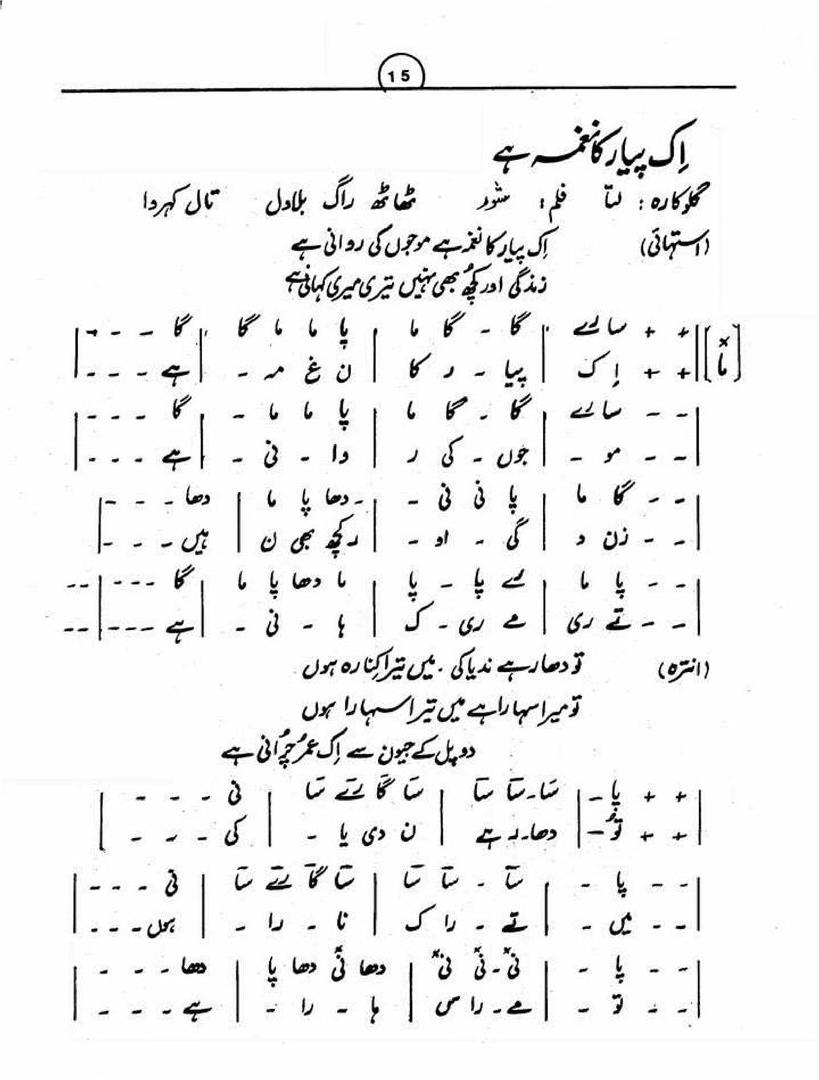 15
اِک پیار کا نغمہ ہے
گلوکارہ: لتا فلم: شور ٹھاٹھ راگ بلاول تال کہروا
(استھائی) اِک پیار کا نغمہ ہے موجوں کی روانی ہے
زندگی اور کچھ بھی نہیں تیری میری کہانی ہے
[ما] || + + سا رے | گا - گا ما | پا ما ما گا | گا - - - |
|| + + اِ ک | پیا - ر کا | ن غ مہ - | ہے - - - |
| - - سا رے | گا - گا ما | پا ما ما - | گا - - - |
| - - مو - | جوں - کی ر | وا - نی - | ہے - - - |
| - - گا ما | پا نی نی - | - دھا پا ما | دھا - - - |
| - - زن د | گی - او - | ر کچھ بھی ن | ہیں - - - |
| - - پا ما | رے پا - پا | ما دھا پا ما | گا - - - | - -
| - - تے ری | مے ری - ک | ہا - نی - | ہے - - - | - -
(انترہ) تو دھار ہے ندیا کی - میں تیرا کنارہ ہوں
تو میرا سہارا ہے میں تیرا سہارا ہوں
دو پل کے جیون سے اِک عمر چُرانی ہے
| + + پا - | سَا - سَا سَا | سَا گَا رَے سَا | نی - - - |
| + + تُو - | دھا - ر ہے | ن دی یا - | کی - - - |
| - - پا - | سَا - سَا سَا | سَا گَا رَے سَا | نی - - - |
| - - میں - | تے - را ک | نا - را - | ہوں - - - |
| - - پا - | نی - نی نی | دھا نی دھا پا | دھا - - - |
| - - تو - | مے - را س | ہا - را - | ہے - - - |